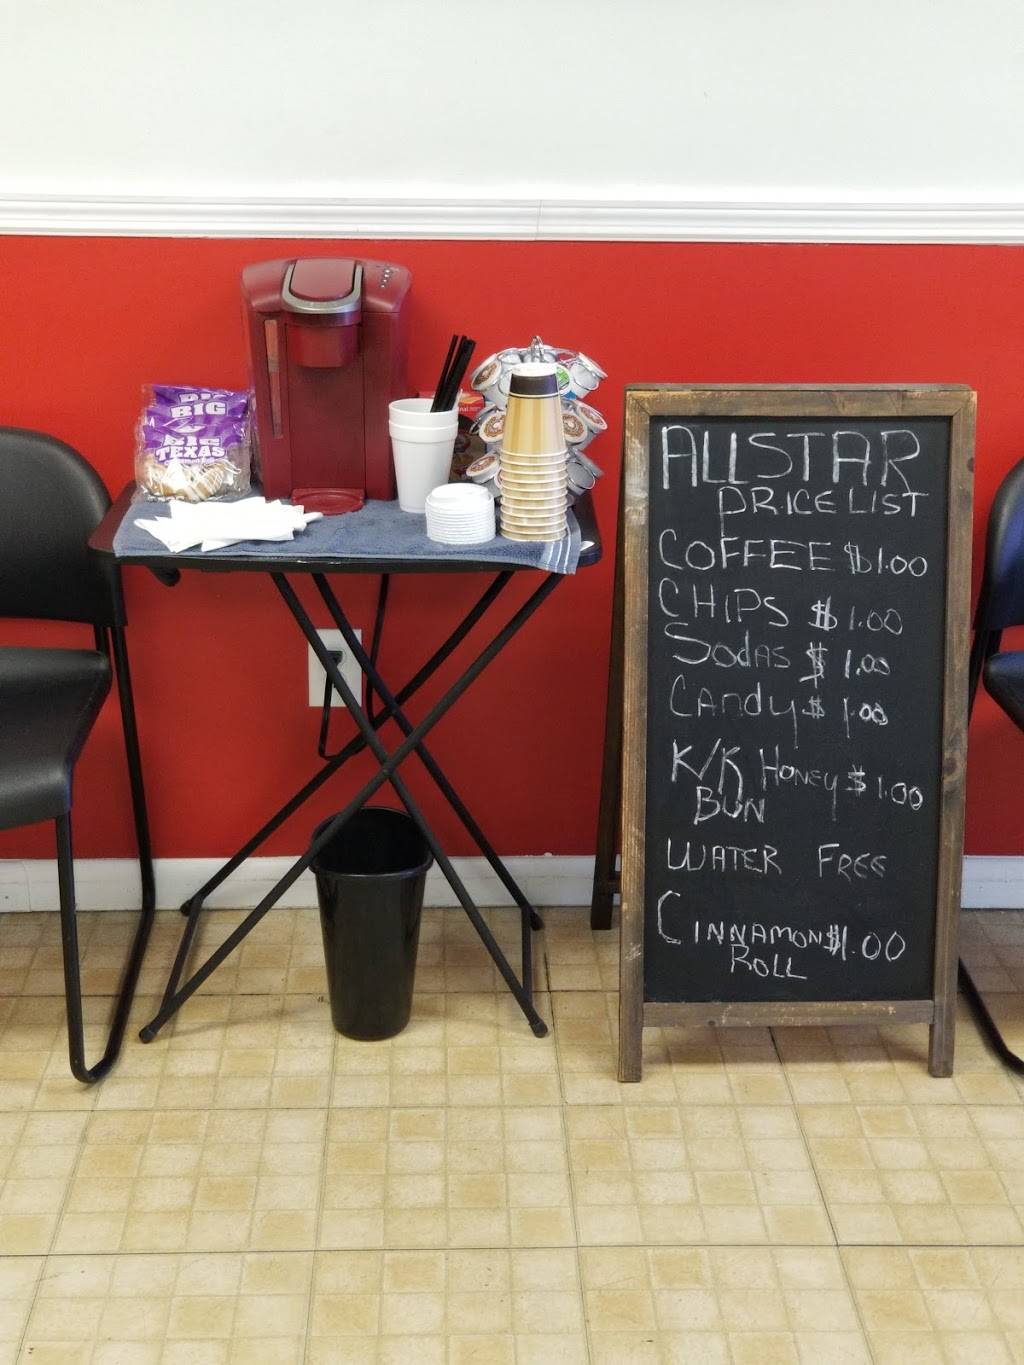 BIG
BIG
TEXAS
ALLSTAR
PRICE LIST
COFFEE $1.00
CHIPS $1.00
Sodas $1.00
Candy $1.00
K/K Honey $1.00
BUN
WATER FREE
CINNAMON $1.00
ROLL